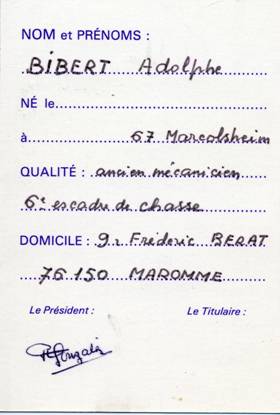 NOM et PRÉNOMS :
BIBERT Adolphe
NÉ le
à 67 Marcolsheim
QUALITÉ : ancien mécanicien
6e escadre de chasse
DOMICILE : 9 r Fréderic BERAT
76 150 MAROMME
Le Président : Le Titulaire :